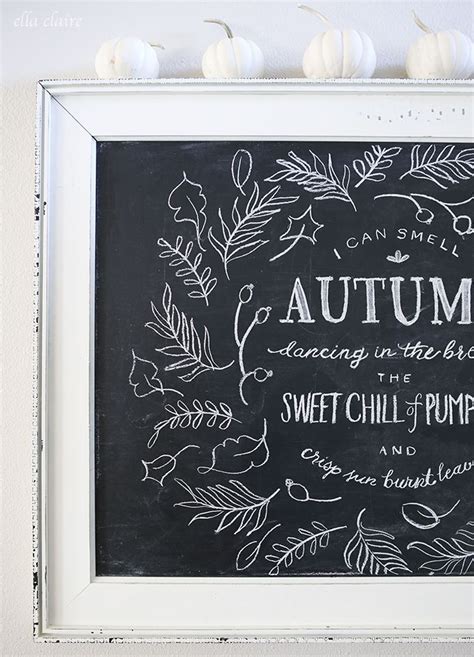 ella claire
I CAN SMELL
AUTUM
dancing in the bre
THE
SWEET CHILL of PUMP
AND
crisp sun burnt leav